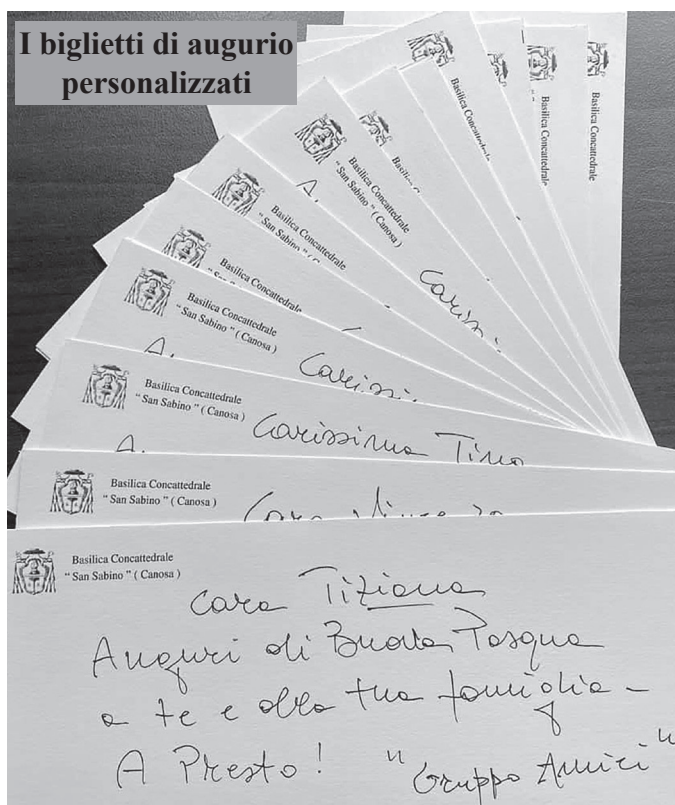 I biglietti di augurio
personalizzati
Basilica Concattedrale
Basilica Concattedrale
Basilica Concattedrale
Basilica Concattedrale
" San Sabino " ( Canosa )
A.
Basilica Concattedrale
" San Sabino "
Carissi
Basilica Concattedrale
Basilica Concattedrale
" San Sabino " ( Canosa )
A.
Carissi
Basilica Concattedrale
" San Sabino " ( Canosa )
Carissima
A.
Basilica Concattedrale
" San Sabino " ( Canosa )
Basilica Concattedrale
" San Sabino " ( Canosa )
Cara Tiziana
Auguri di Buona Pasqua
a te e alla tua famiglia –
A Presto! "Gruppo Amici"